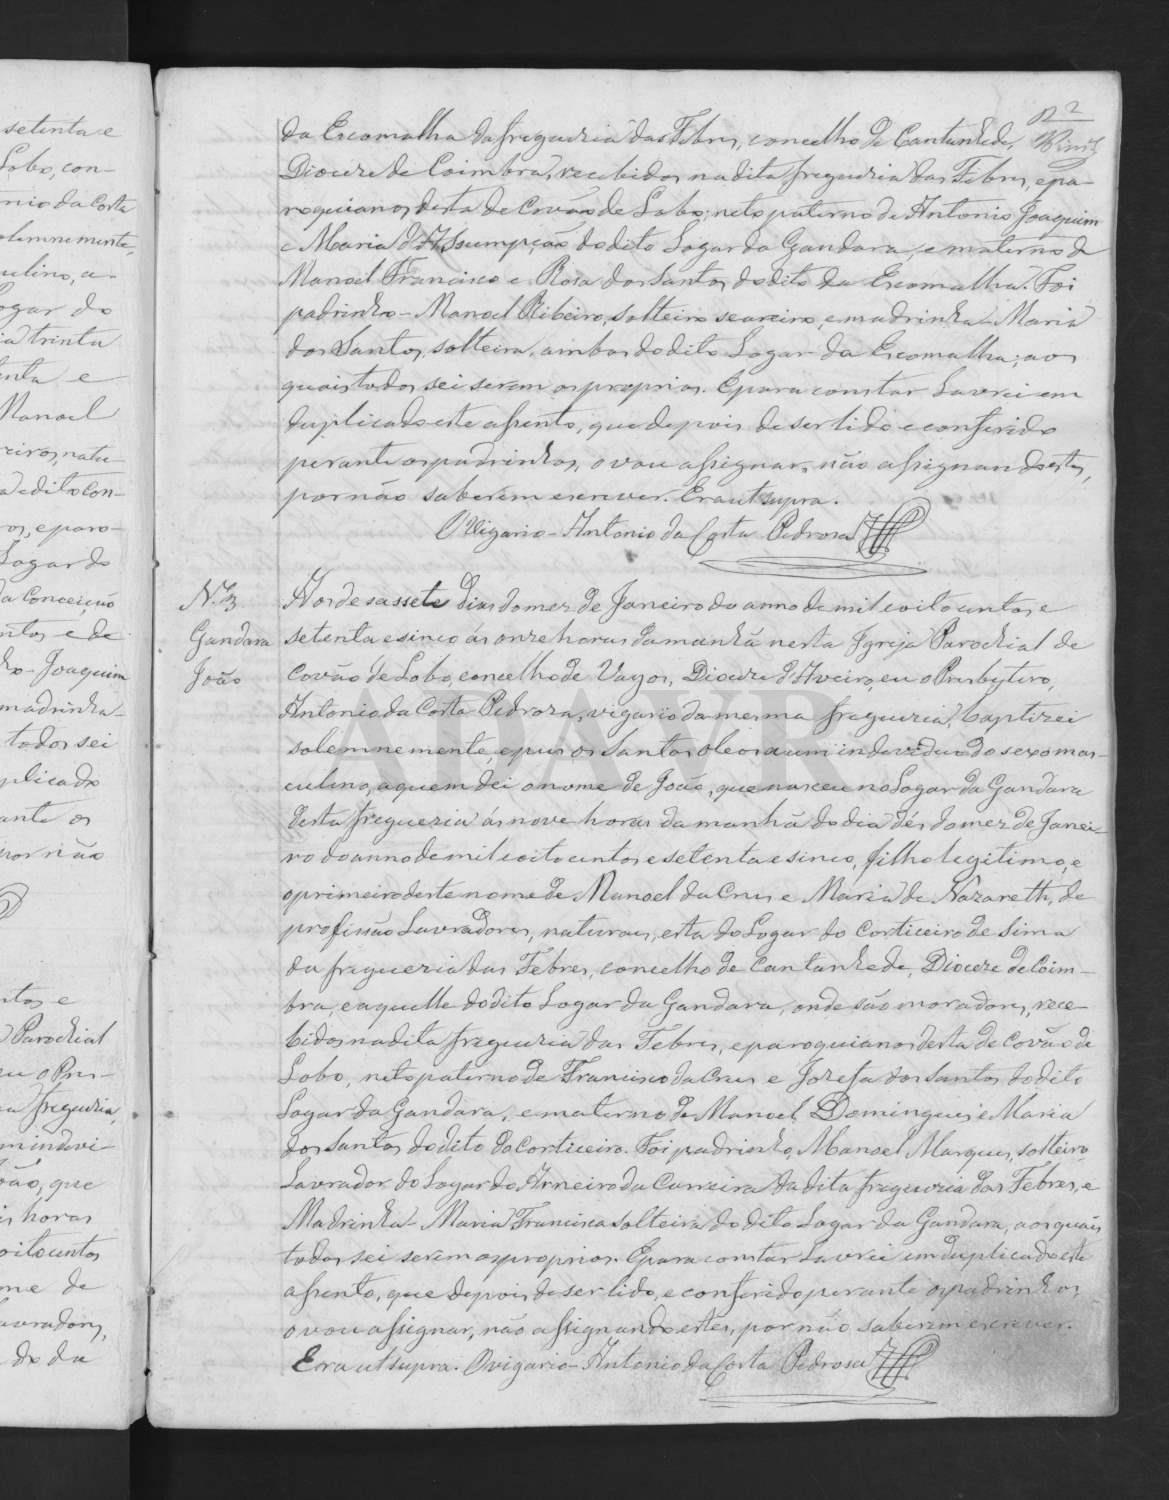 setenta e
Lobo, con-
nio da Costa
olemnemente,
culino, a-
ogar do
trinta
enta e
Manoel
eiros, natu-
dito con-
os, e paro-
Logar do
da Conceição
ntos e de
Joaquim
madrinha-
todos sei
plicado
ante os
por não
ntos e
Parochial
eu o Pres-
freguezia,
m indivi-
oão, que
is horas
oitocentos
me de
avradores,
do da
2
da Escomalha da freguezia das Febres, concelho de Cantanhede,
Diocese de Coimbra, recebidos na dita freguezia das Febres, e pa-
roquianos desta de Covão de Lobo; neto paterno de Antonio Joaquim
e Maria d'Assumpção do dito Logar da Gandara, e materno de
Manoel Francisco e Rosa dos Santos do dito da Escomalha. Foi
padrinho - Manoel Ribeiro, solteiro seareiro, e madrinha - Maria
dos Santos, solteira, ambos do dito Logar da Escomalha; aos
quais todos sei serem os proprios. E para constar lavrei em
duplicado este assento, que depois de ser lido e conferido
perante os padrinhos, o vou assignar, não assignando estes,
por não saberem escrever. Era ut supra.
O Vigario - Antonio da Costa Pedrosa
N. 3
Gandara
João
Aos desassete dias do mez de Janeiro do anno de mil e oitocentos e
setenta e sinco ás onze horas da manhã nesta Igreja Parochial de
Covão de Lobo, concelho de Vagos, Diocese d'Aveiro, eu o Presbytero,
Antonio da Costa Pedroza, vigario da mesma freguezia, baptizei
solemnemente, e puz os Santos oleos a um individuo do sexo mas-
culino, a quem dei o nome de João, que nasceu no Logar da Gandara
desta freguezia ás nove horas da manhã do dia dés do mez de Janei-
ro do anno de mil e oitocentos e setenta e sinco, filho legitimo, e
o primeiro deste nome de Manoel da Crus e Maria de Nazareth, de
profissão Lavradores, naturaes, esta do Logar do Corticeiro de Sima
da freguezia das Febres, concelho de Cantanhede, Diocese de Coim-
bra, e aquelle do dito Logar da Gandara, onde são moradores, rece-
bidos na dita freguezia das Febres, e paroquianos desta de Covão de
Lobo, neto paterno de Francisco da Crus e Josefa dos Santos do dito
Logar da Gandara, e materno de Manoel Domingues e Maria
dos Santos do dito do Corticeiro. Foi padrinho, Manoel Marques, solteiro
Lavrador do Logar do Arneiro da Carreira da dita freguezia das Febres, e
Madrinha - Maria Francisca solteira do dito Logar da Gandara, aos quais
todos sei serem os proprios. E para constar lavrei em duplicado este
assento, que depois de ser lido, e conferido perante os padrinhos,
o vou assignar, não assignando estes, por não saberem escrever.
Era ut supra. O vigario - Antonio da Costa Pedrosa
ADAVR